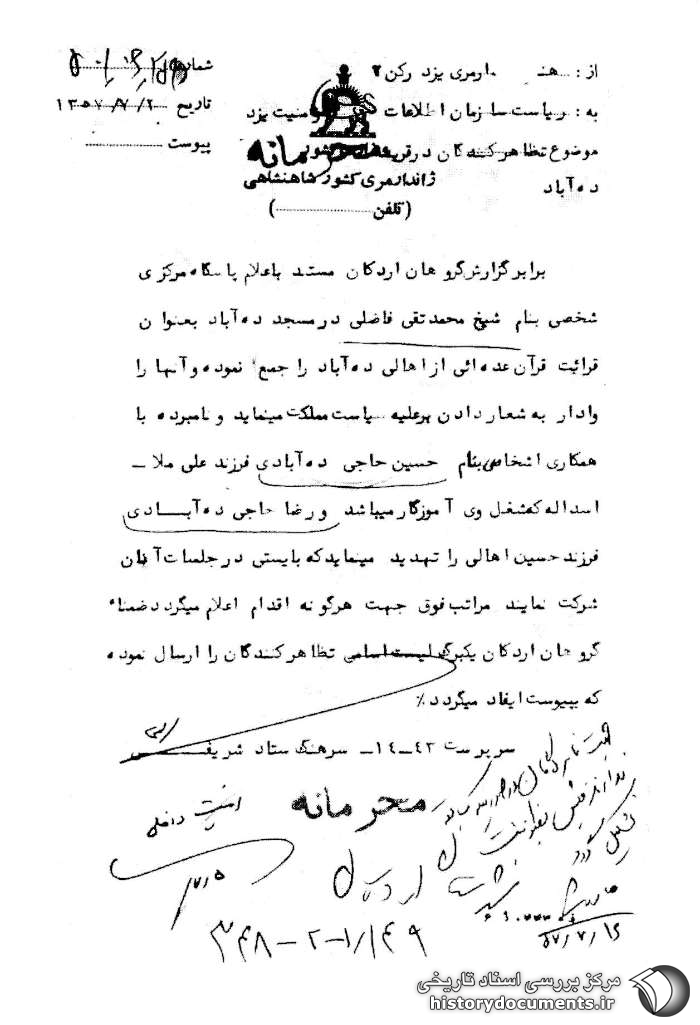 از : هنـ ـدارمری یزد رکن ۲
شماره
به : ریاست سازمان اطلاعات ـامنیت یزد
تاریخ ۱۳۵۷/۷/۲
موضوع تظاهرکنندگان در قریه
پیوست
محرمانه
ده آباد
ژاندارمری کشور شاهنشاهی
(تلفن )
برابر گزارش گروهان اردکان مستند باعلام پاسگاه مرکزی
شخصی بنام شیخ محمدتقی فاضلی در مسجد ده آباد بعنوان
قرائیت قرآن عده ائی از اهالی ده آباد را جمع نموده و آنها را
وادار به شعار دادن برعلیه سیاست مملکت مینماید و نامبرده با
همکاری اشخاصی بنام حسین حاجی ده آبادی فرزند علی ملا ــ
اسداله که شغل وی آموزگار میباشد و رضا حاجی ده آبــادی
فرزند حسین اهالی را تهدید مینماید که بایستی در جلسات آنان
شرکت نمایند مراتب فوق جهت هرگونه اقدام اعلام میگردد ضمناً
گروهان اردکان یکبرگ لیست اسامی تظاهرکنندگان را ارسال نموده
که بپیوست ایفاد میگردد ٪
سرپرست ۴۲ــ۱۴ــ سرهنگ ستاد شریفــی
محرمانه
امنیت داخلی
اردکان
۳۴۸-۲-۱/۱۴۹
۵۷/۷/۱۶
مرکز بررسی اسناد تاریخی
historydocuments.ir